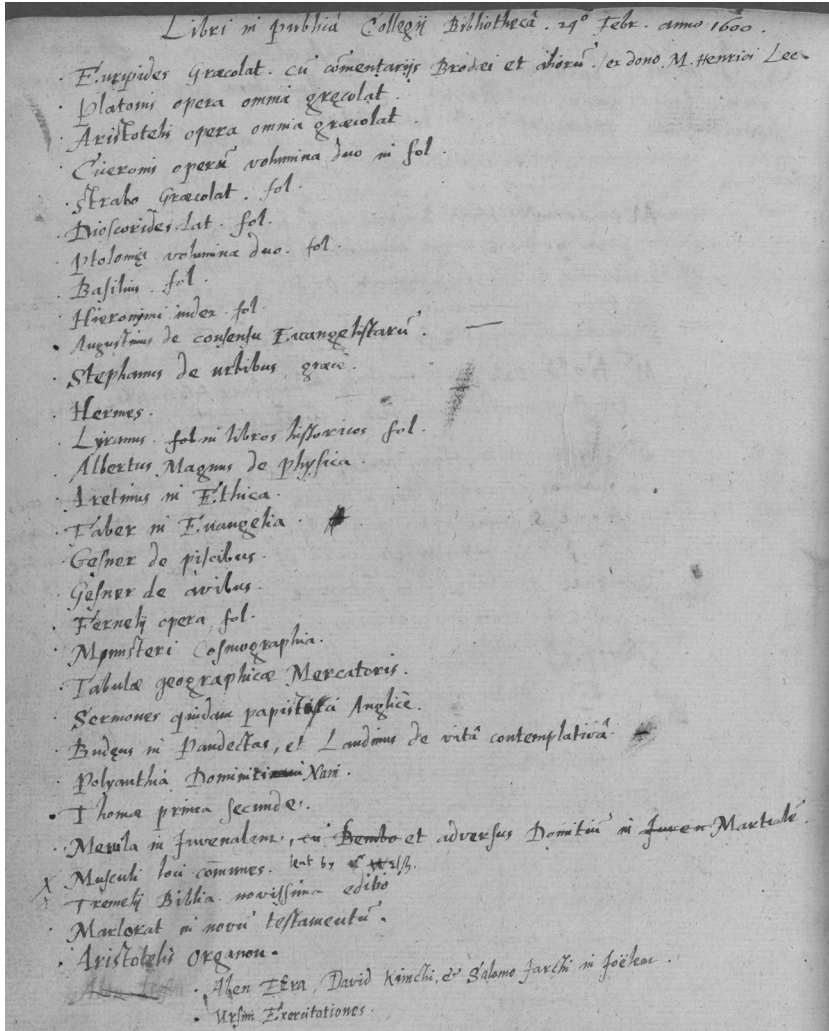 Libri in publicâ Collegij Bibliothecâ . 24º Febr. anno 1600.
· Euripides Græcolat. cū cōmentarijs Brodæi et aliorū. / ex dono M. Henrici Lee.
· Platonis opera omnia gręcolat.
· Aristotelis opera omnia græcolat.
· Ciceronis operū volumina duo in fol.
· Strabo Græcolat. fol.
· Dioscorides Lat. fol.
· Ptolomęi volumina duo. fol.
· Basilius. fol.
· Hieronymi index. fol.
· Augustinus de consensu Evangelistarū. —
· Stephanus de urbibus græcè.
· Hermes.
· Lyranus fol in libros historicos fol.
· Albertus Magnus de physica.
· Aretinus in Ethica.
· Faber in Evangelia.
· Gesner de piscibus.
· Gesner de avibus.
· Fernelij opera, fol.
· Munsteri Cosmographia.
· Tabulæ geographicæ Mercatoris.
· Sermones quidam papistici Anglicè.
· Budęus in Pandectas, et Landinus de vitâ contemplativâ.
· Polyanthia Dominici Nani.
· Thomæ prima secundę.
· Merula in Juvenalem, cū Bembo et adversus Domitiū in Juven Martialē.
· Musculi loci cōmunes. lent by
X Tremelij Biblia novissima editio
· Marlorat in novū testamentū.
· Aristotelis Organon.
· Aben Ezra, David Kimchi, & Salomo Jarchi in Joëlem.
· Ursini Exercitationes.